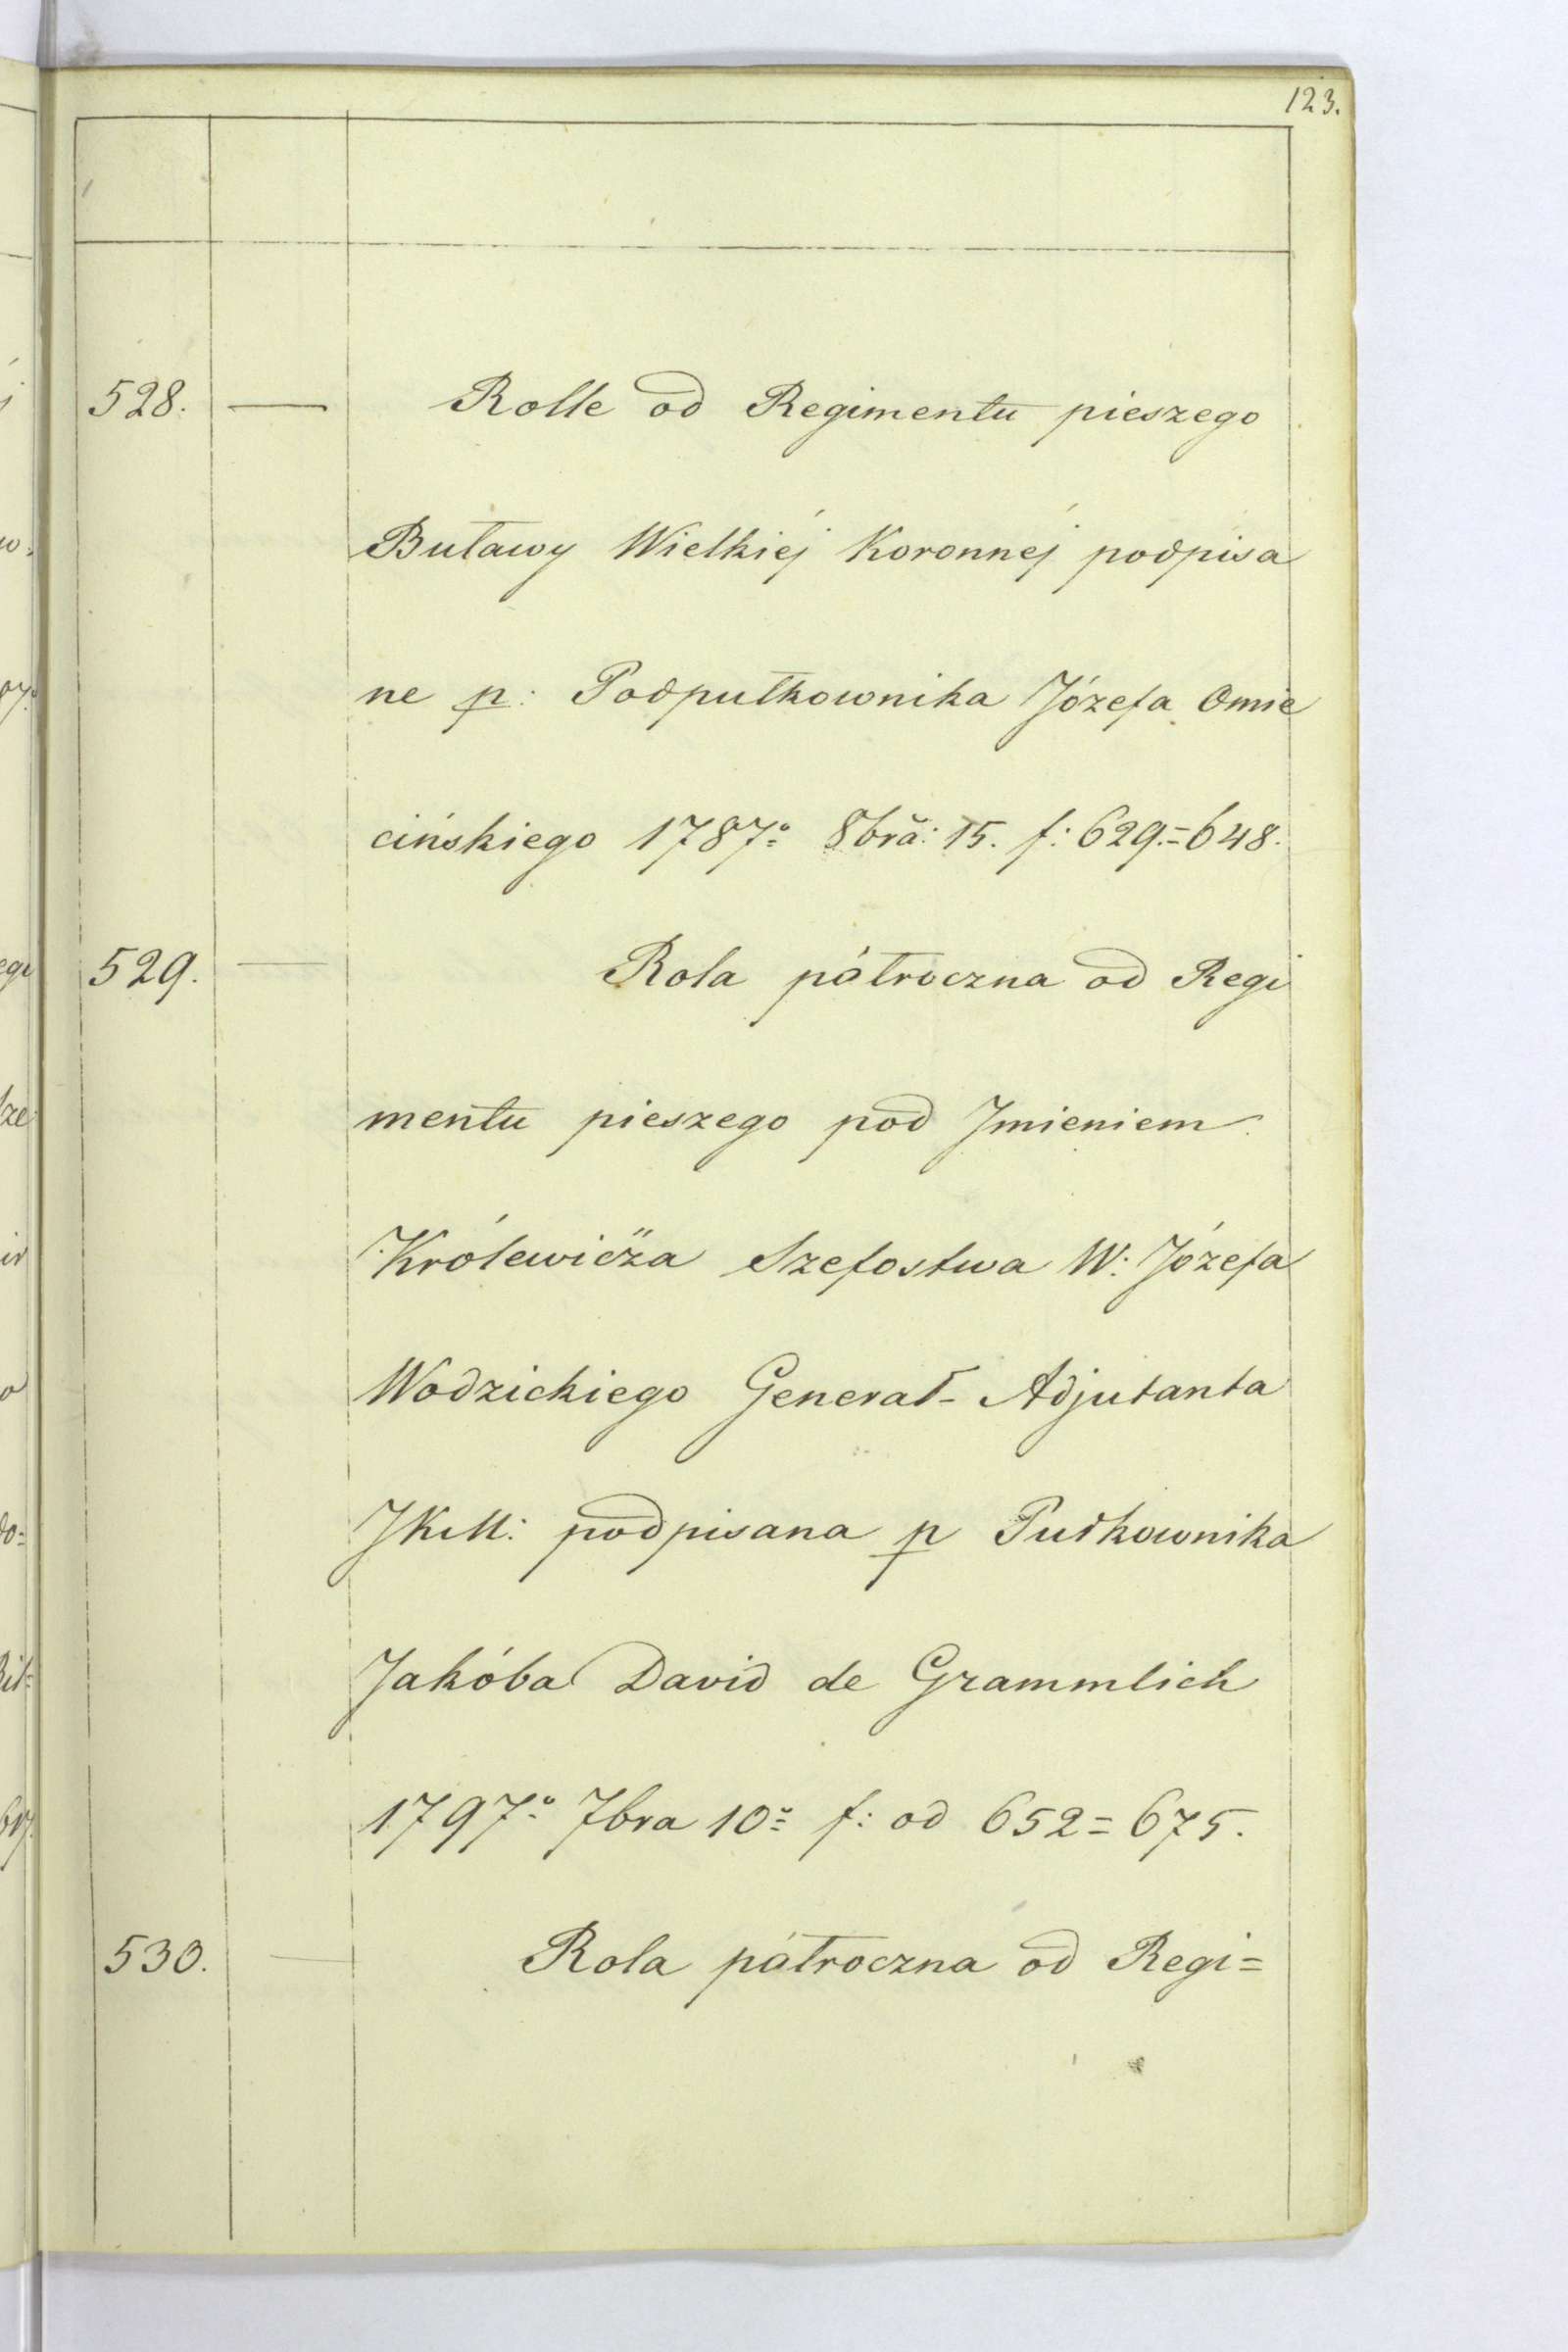 123.
528. — Rolle od Regimentu pieszego
Buławy Wielkiéj Koronnéj podpisa
ne p: Podpułkownika Józefa Omie
cińskiego 1787o 8bra: 15. f: 629.=648.
529. — Rola półroczna od Regi
mentu pieszego pod Jmieniem
Królewicza Szefostwa W: Józefa
Wodzickiego Generał-Adjutanta
JKM: podpisana p Pułkownika
Jakóba David de Grammlich
1797o 7bra 10o f: od 652=675.
530. — Rola półroczna od Regi=